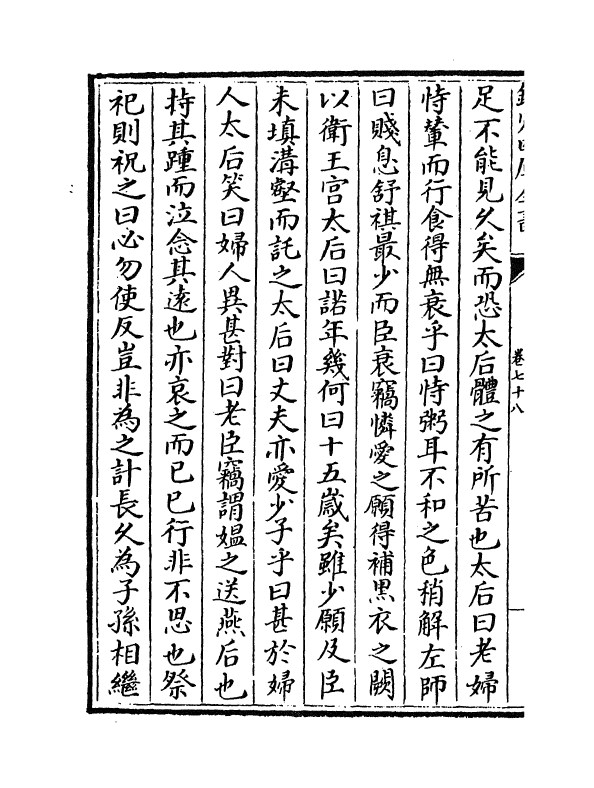 欽定四庫全書
卷七十八
足不能見乆矣而恐太后體之有所苦也太后曰老婦
恃輦而行食得無衰乎曰恃粥耳不和之色稍解左師
曰賤息舒祺最少而臣衰竊憐愛之願得補黒衣之闕
以衛王宫太后曰諾年幾何曰十五嵗矣雖少願及臣
未填溝壑而託之太后曰丈夫亦愛少子乎曰甚於婦
人太后笑曰婦人異甚對曰老臣竊謂媼之送燕后也
持其踵而泣念其逺也亦哀之而已已行非不思也祭
祀則祝之曰必勿使反豈非為之計長乆為子孫相繼